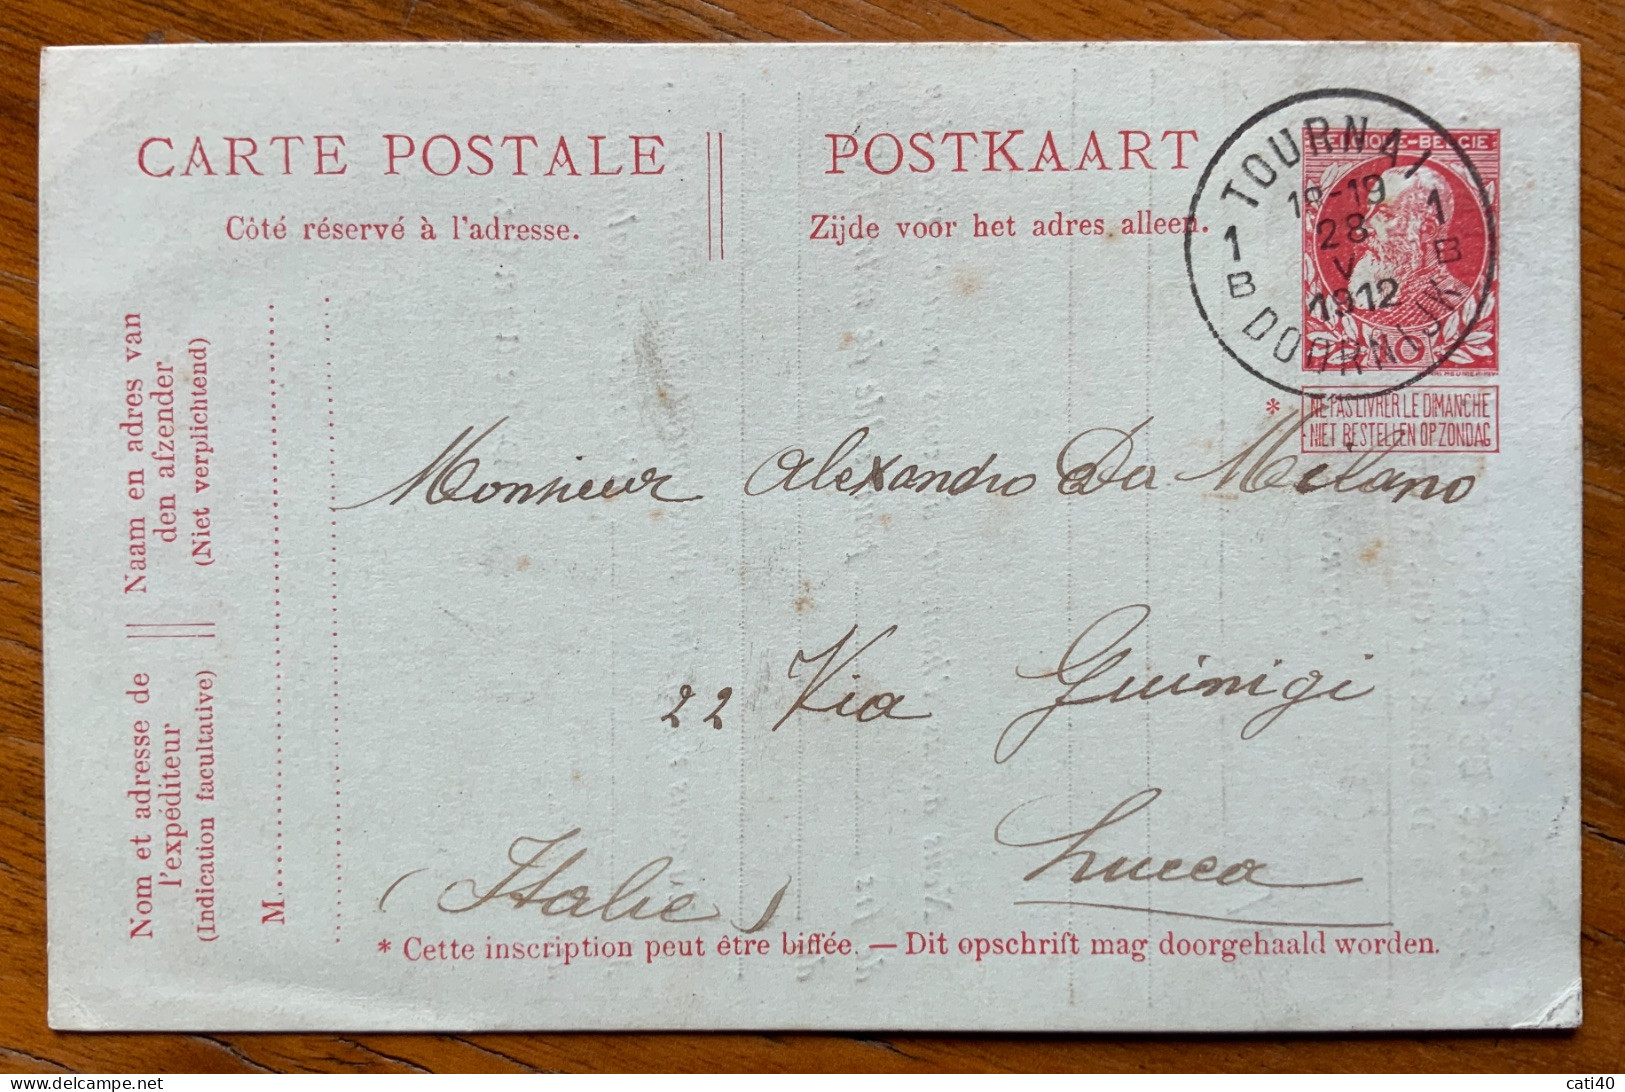 CARTE POSTALE
POSTKAART
Côté réservé à l'adresse.
Zijde voor het adres alleen.
TOURNAI
18-19
28
V
1912
1 B
1 B
DOORNIJK
BELGIQUE-BELGIË
10
* NE PAS LIVRER LE DIMANCHE
NIET BESTELLEN OP ZONDAG
Naam en adres van
den afzender
(Niet verplichtend)
Nom et adresse de
l'expéditeur
(Indication facultative)
M.
Monsieur Alexandro Da Milano
22 Via Guinigi
Lucca
(Italie)
* Cette inscription peut être biffée. — Dit opschrift mag doorgehaald worden.
cati40